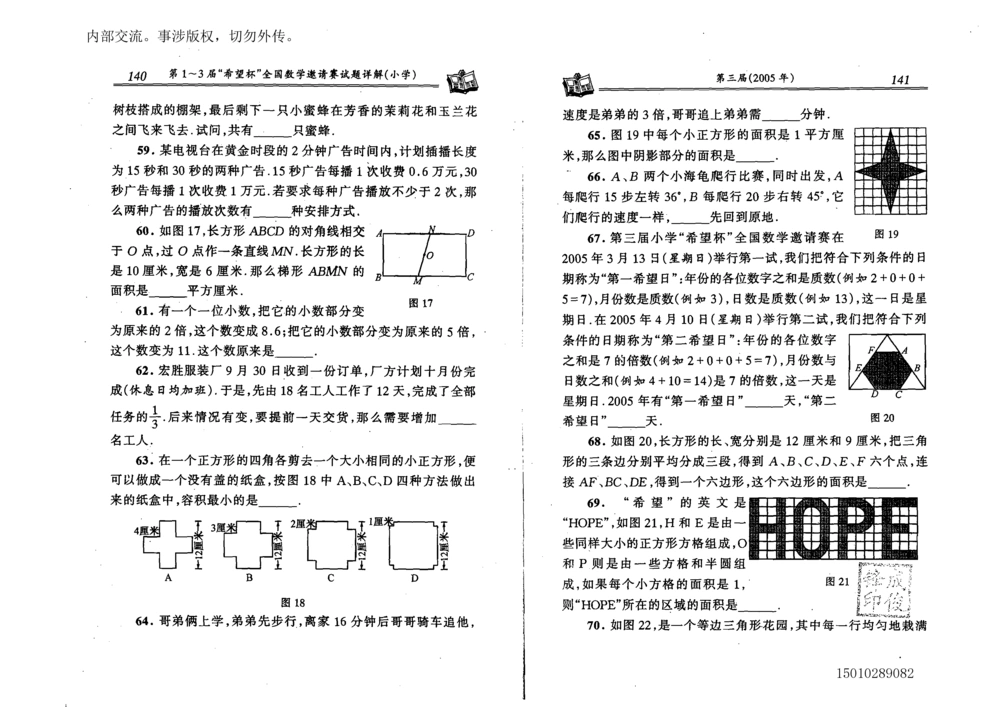 内部交流。事涉版权，切勿外传。
140 第1~3届“希望杯”全国数学邀请赛试题详解(小学)
树枝搭成的棚架,最后剩下一只小蜜蜂在芳香的茉莉花和玉兰花
之间飞来飞去.试问,共有______只蜜蜂.
59. 某电视台在黄金时段的2分钟广告时间内,计划插播长度
为15秒和30秒的两种广告.15秒广告每播1次收费0.6万元,30
秒广告每播1次收费1万元.若要求每种广告播放不少于2次,那
么两种广告的播放次数有______种安排方式.
60. 如图17,长方形ABCD的对角线相交
于O点,过O点作一条直线MN.长方形的长
是10厘米,宽是6厘米.那么梯形ABMN的
面积是______平方厘米.
A N D
O
B M C
图17
61. 有一个一位小数,把它的小数部分变
为原来的2倍,这个数变成8.6;把它的小数部分变为原来的5倍,
这个数变为11.这个数原来是______.
62. 宏胜服装厂9月30日收到一份订单,厂方计划十月份完
成(休息日均加班).于是,先由18名工人工作了12天,完成了全部
任务的1/3.后来情况有变,要提前一天交货,那么需要增加______
名工人.
63. 在一个正方形的四角各剪去一个大小相同的小正方形,便
可以做成一个没有盖的纸盒,按图18中A、B、C、D四种方法做出
来的纸盒中,容积最小的是______.
4厘米 12厘米 3厘米 12厘米 2厘米 12厘米 1厘米 12厘米
A B C D
图18
64. 哥弟俩上学,弟弟先步行,离家16分钟后哥哥骑车追他,
第三届(2005年) 141
速度是弟弟的3倍,哥哥追上弟弟需______分钟.
65. 图19中每个小正方形的面积是1平方厘
米,那么图中阴影部分的面积是______.
66. A、B两个小海龟爬行比赛,同时出发,A
每爬行15步左转36°,B每爬行20步右转45°,它
们爬行的速度一样,______先回到原地.
图19
67. 第三届小学“希望杯”全国数学邀请赛在
2005年3月13日(星期日)举行第一试,我们把符合下列条件的日
期称为“第一希望日”:年份的各位数字之和是质数(例如2+0+0+
5=7),月份数是质数(例如3),日数是质数(例如13),这一日是星
期日.在2005年4月10日(星期日)举行第二试,我们把符合下列
条件的日期称为“第二希望日”:年份的各位数字
之和是7的倍数(例如2+0+0+5=7),月份数与
日数之和(例如4+10=14)是7的倍数,这一天是
星期日.2005年有“第一希望日”______天,“第二
希望日”______天.
F A
E B
D C
图20
68. 如图20,长方形的长、宽分别是12厘米和9厘米,把三角
形的三条边分别平均分成三段,得到A、B、C、D、E、F六个点,连
接AF、BC、DE,得到一个六边形,这个六边形的面积是______.
69. “希望”的英文是
“HOPE”,如图21,H和E是由一
些同样大小的正方形方格组成,O
和P则是由一些方格和半圆组
成,如果每个小方格的面积是1,
则“HOPE”所在的区域的面积是______.
HOPE
图21
70. 如图22,是一个等边三角形花园,其中每一行均匀地栽满
15010289082